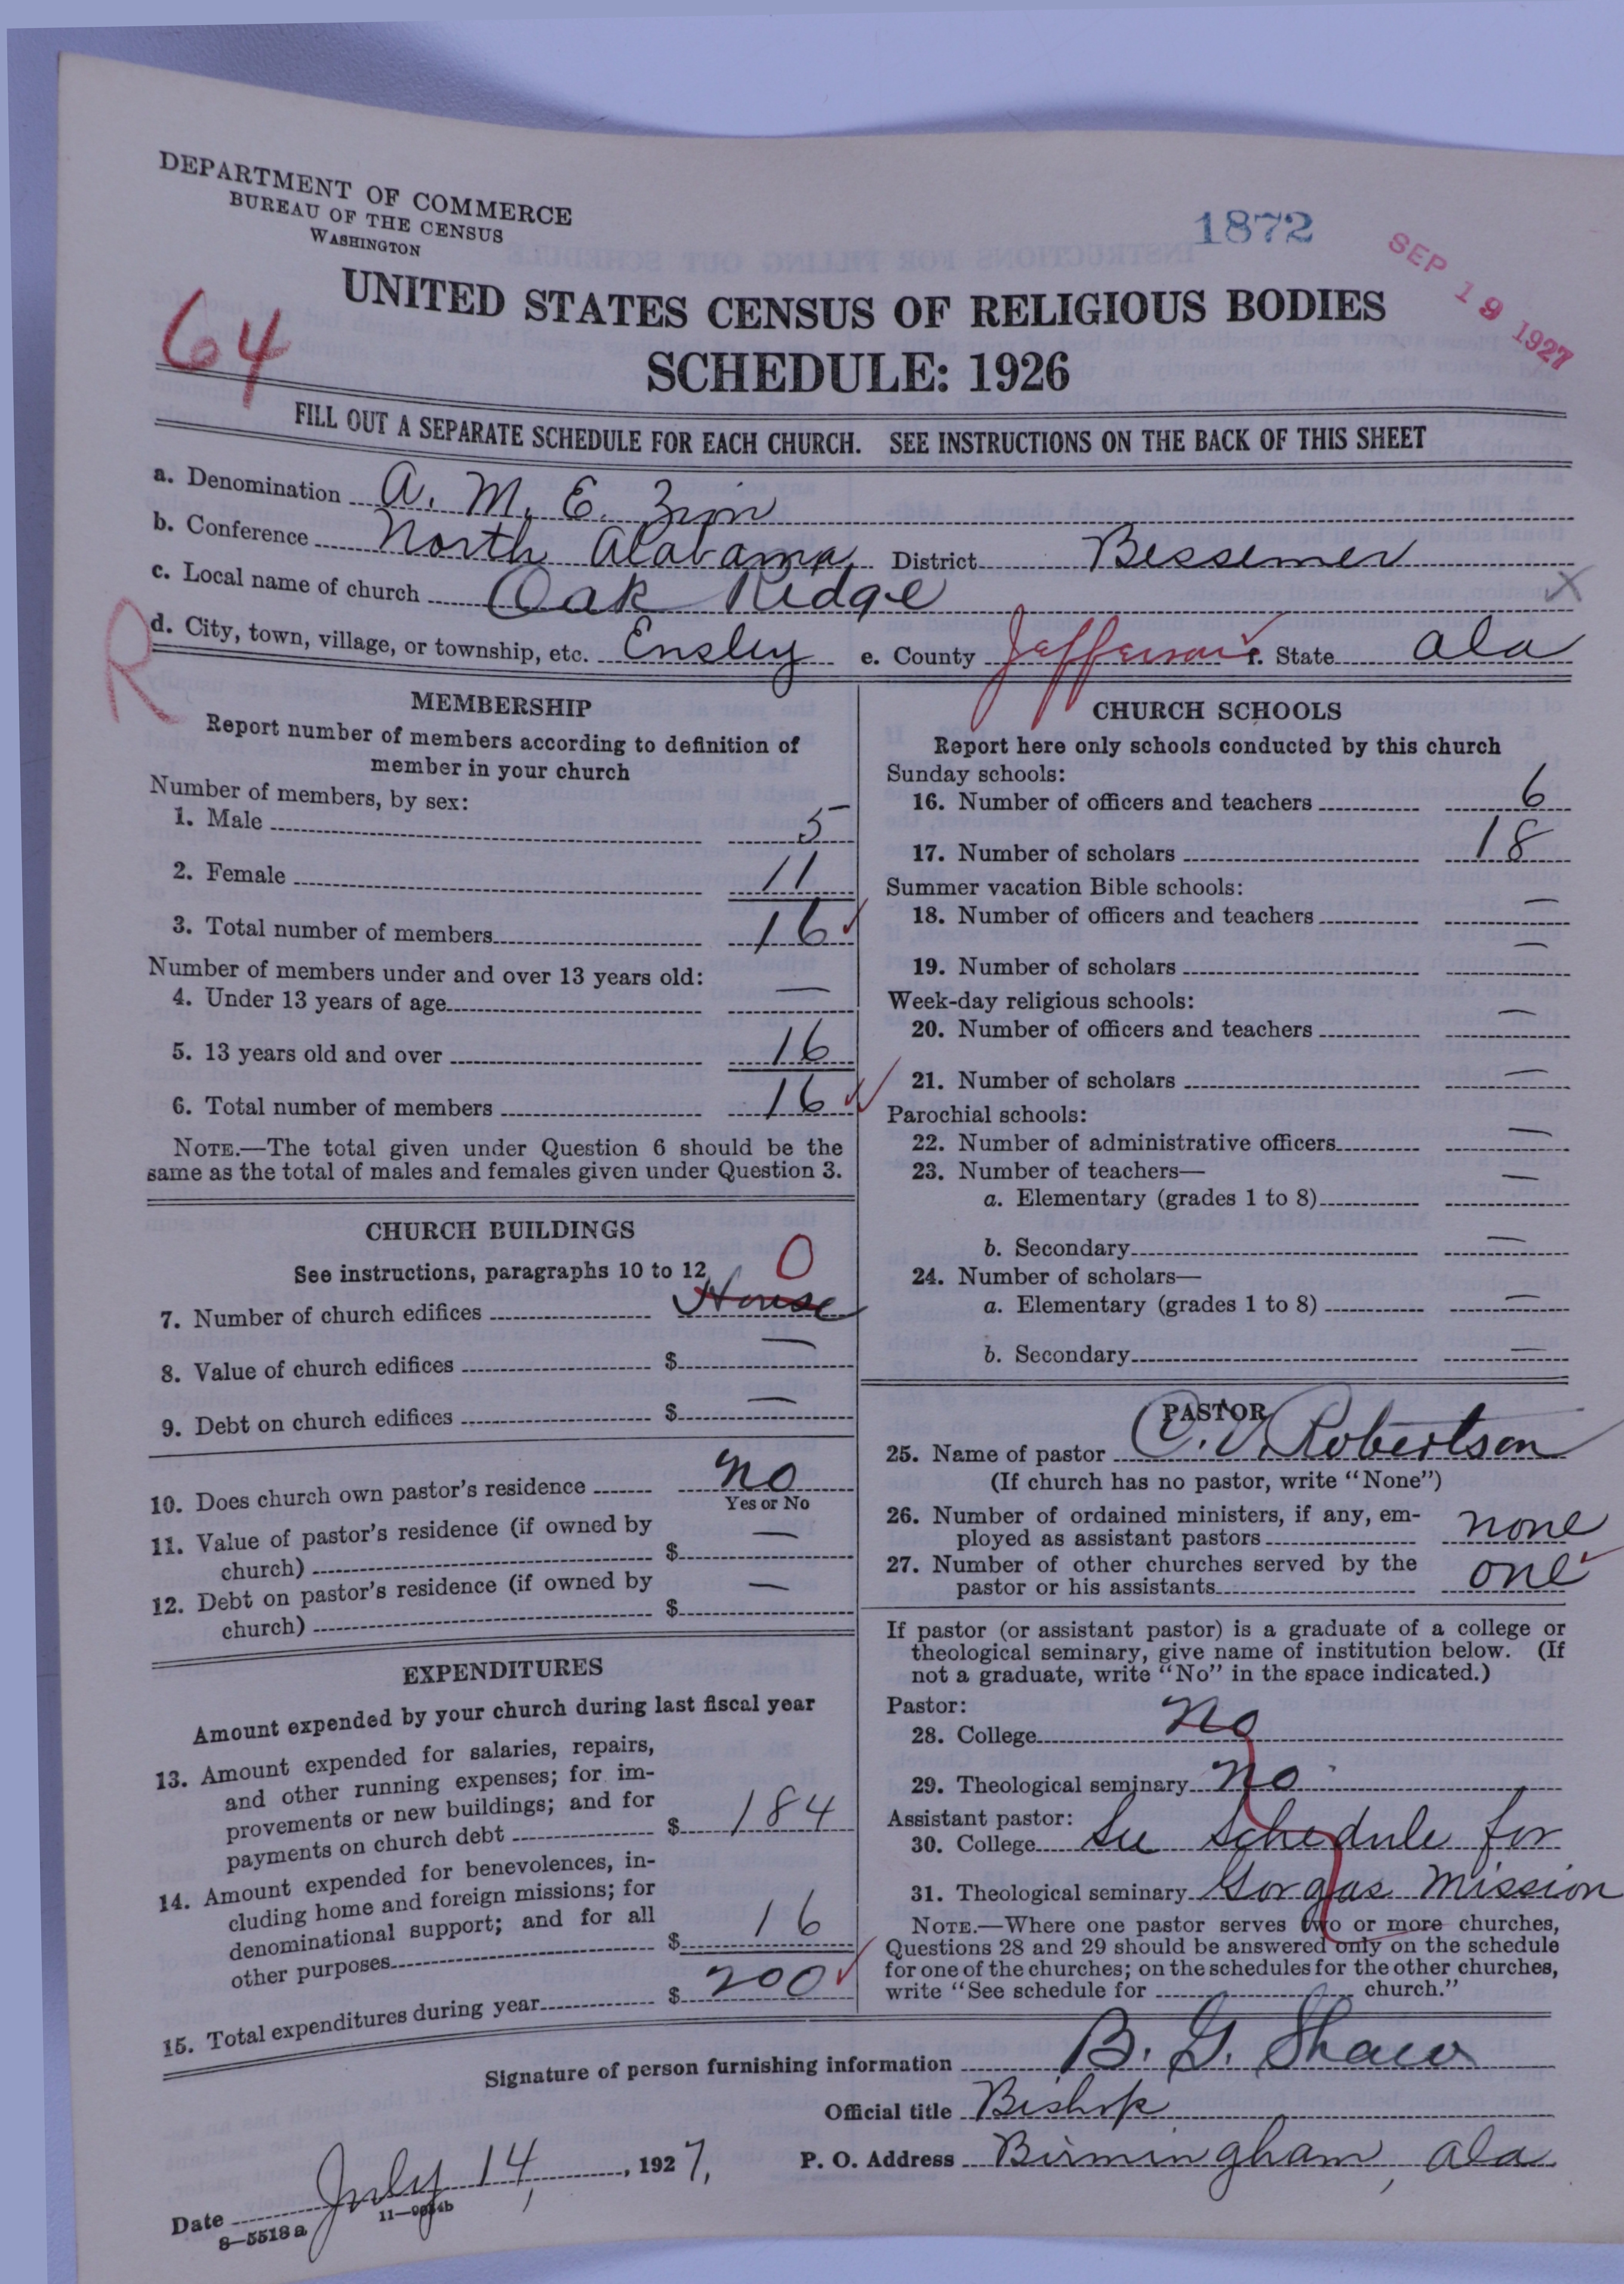 DEPARTMENT OF COMMERCE
BUREAU OF THE CENSUS
WASHINGTON
1872
SEP 19 1927
UNITED STATES CENSUS OF RELIGIOUS BODIES
64
SCHEDULE: 1926
FILL OUT A SEPARATE SCHEDULE FOR EACH CHURCH. SEE INSTRUCTIONS ON THE BACK OF THIS SHEET
a. Denomination A. M. E. Zion
b. Conference North Alabama District Bessemer
c. Local name of church Oak Ridge X
R
d. City, town, village, or township, etc. Ensley e. County Jefferson f. State Ala
MEMBERSHIP
Report number of members according to definition of
member in your church
Number of members, by sex:
1. Male 5
2. Female 11
3. Total number of members 16
Number of members under and over 13 years old:
4. Under 13 years of age —
5. 13 years old and over 16
6. Total number of members 16
NOTE.—The total given under Question 6 should be the
same as the total of males and females given under Question 3.
CHURCH BUILDINGS
See instructions, paragraphs 10 to 12
0
7. Number of church edifices House
8. Value of church edifices $ —
9. Debt on church edifices $ —
10. Does church own pastor's residence No
Yes or No
11. Value of pastor's residence (if owned by
church) $ —
12. Debt on pastor's residence (if owned by
church) $ —
EXPENDITURES
Amount expended by your church during last fiscal year
13. Amount expended for salaries, repairs,
and other running expenses; for im-
provements or new buildings; and for
payments on church debt $ 184
14. Amount expended for benevolences, in-
cluding home and foreign missions; for
denominational support; and for all
other purposes $ 16
15. Total expenditures during year $ 200
CHURCH SCHOOLS
Report here only schools conducted by this church
Sunday schools:
16. Number of officers and teachers 6
17. Number of scholars 18
Summer vacation Bible schools:
18. Number of officers and teachers —
19. Number of scholars —
Week-day religious schools:
20. Number of officers and teachers —
21. Number of scholars —
Parochial schools:
22. Number of administrative officers —
23. Number of teachers—
a. Elementary (grades 1 to 8) —
b. Secondary —
24. Number of scholars—
a. Elementary (grades 1 to 8) —
b. Secondary —
PASTOR
25. Name of pastor C. V. Robertson
(If church has no pastor, write "None")
26. Number of ordained ministers, if any, em-
ployed as assistant pastors none
27. Number of other churches served by the
pastor or his assistants one
If pastor (or assistant pastor) is a graduate of a college or
theological seminary, give name of institution below. (If
not a graduate, write "No" in the space indicated.)
Pastor:
28. College No
29. Theological seminary No
Assistant pastor:
30. College See Schedule for
31. Theological seminary Gorgas Mission
NOTE.—Where one pastor serves two or more churches,
Questions 28 and 29 should be answered only on the schedule
for one of the churches; on the schedules for the other churches,
write "See schedule for church."
Signature of person furnishing information B. G. Shaw
Official title Bishop
Date July 14, 1927, P. O. Address Birmingham, Ala
8—5518a 11—9034b